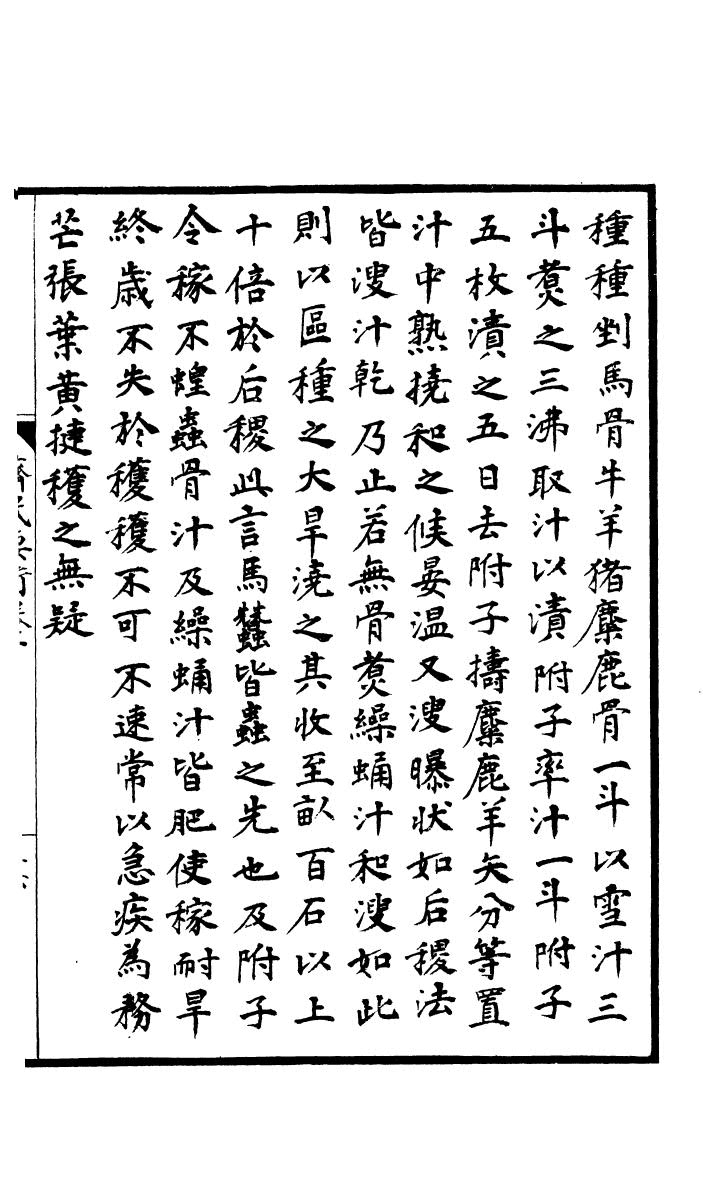 種種剉馬骨牛羊猪麋鹿骨一斗以雪汁三
斗煑之三沸取汁以漬附子率汁一斗附子
五枚漬之五日去附子擣麋鹿羊矢分等置
汁中熟撓和之候晏温又溲曝狀如后稷法
皆溲汁乾乃止若無骨煑繰蛹汁和溲如此
則以區種之大旱澆之其收至畝百石以上
十倍於后稷此言馬蠶皆蟲之先也及附子
令稼不蝗蟲骨汁及繰蛹汁皆肥使稼耐旱
終歲不失於穫穫不可不速常以急疾為務
芒張葉黃捷穫之無疑